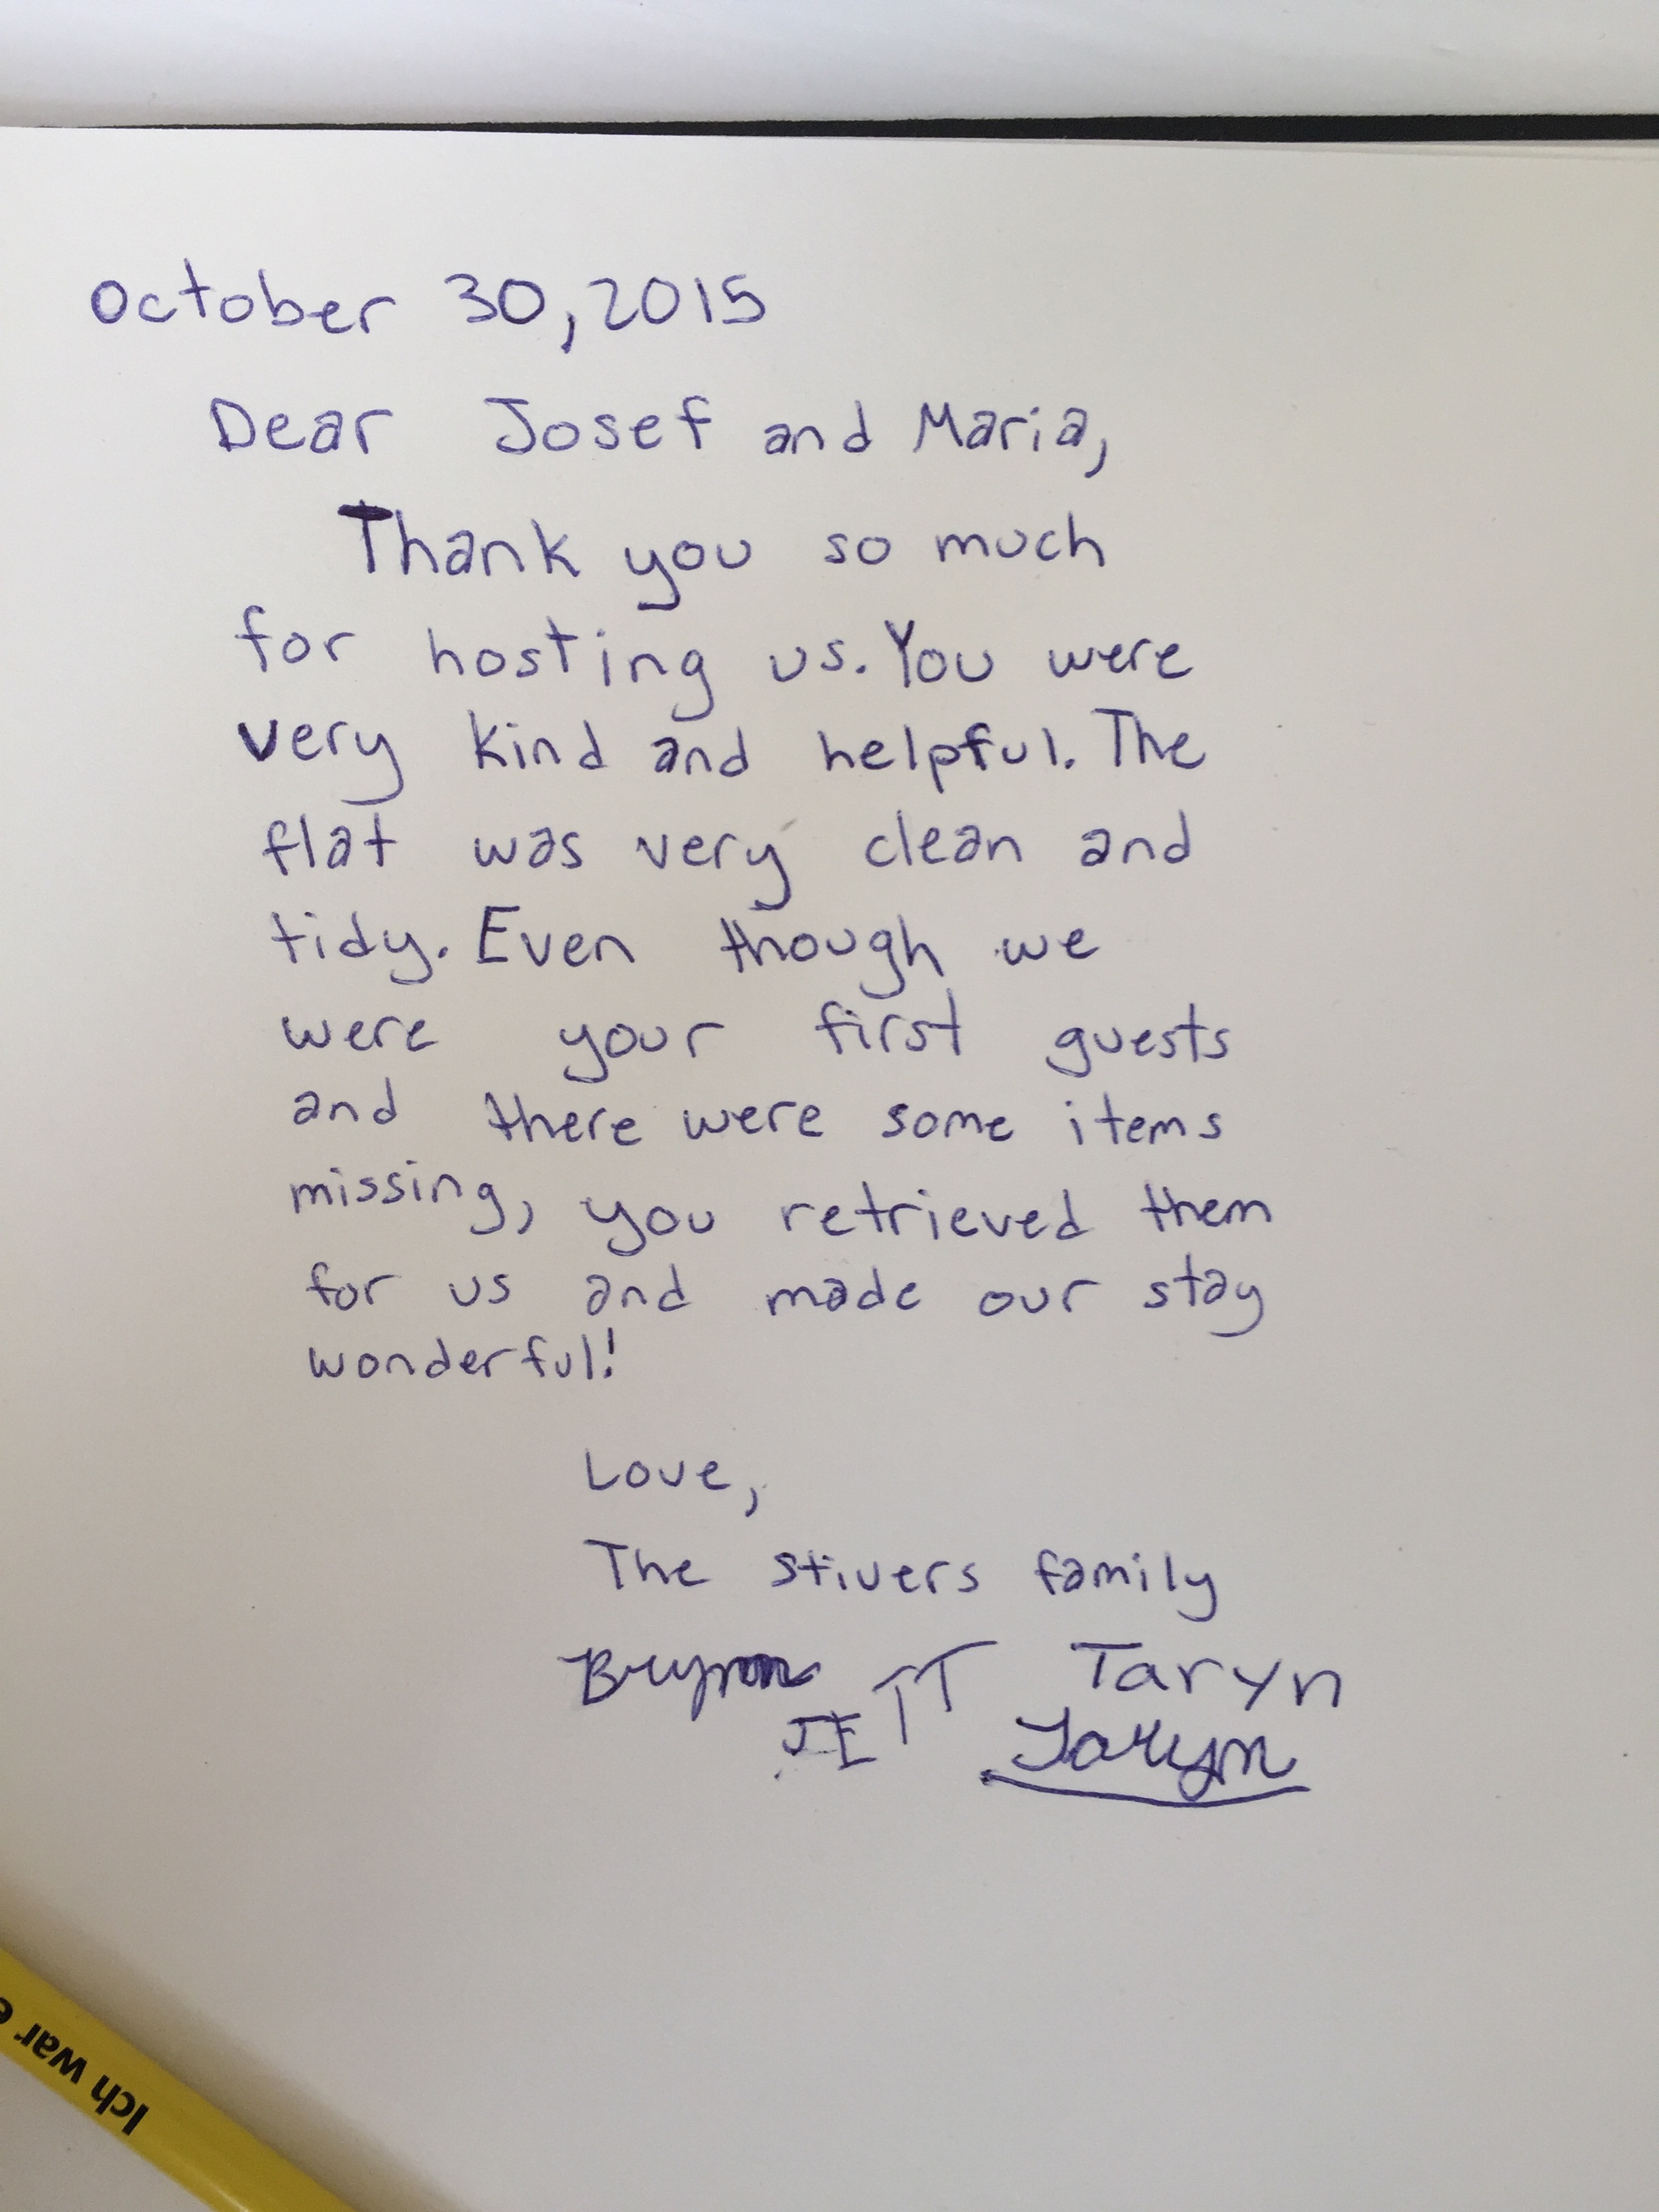 October 30, 2015
Dear Josef and Maria,
Thank you so much
for hosting us. You were
very kind and helpful. The
flat was very clean and
tidy. Even though we
were your first guests
and there were some items
missing, you retrieved them
for us and made our stay
wonderful!
Love,
The Stivers family
Taryn
JETT
Taryn
Ich war